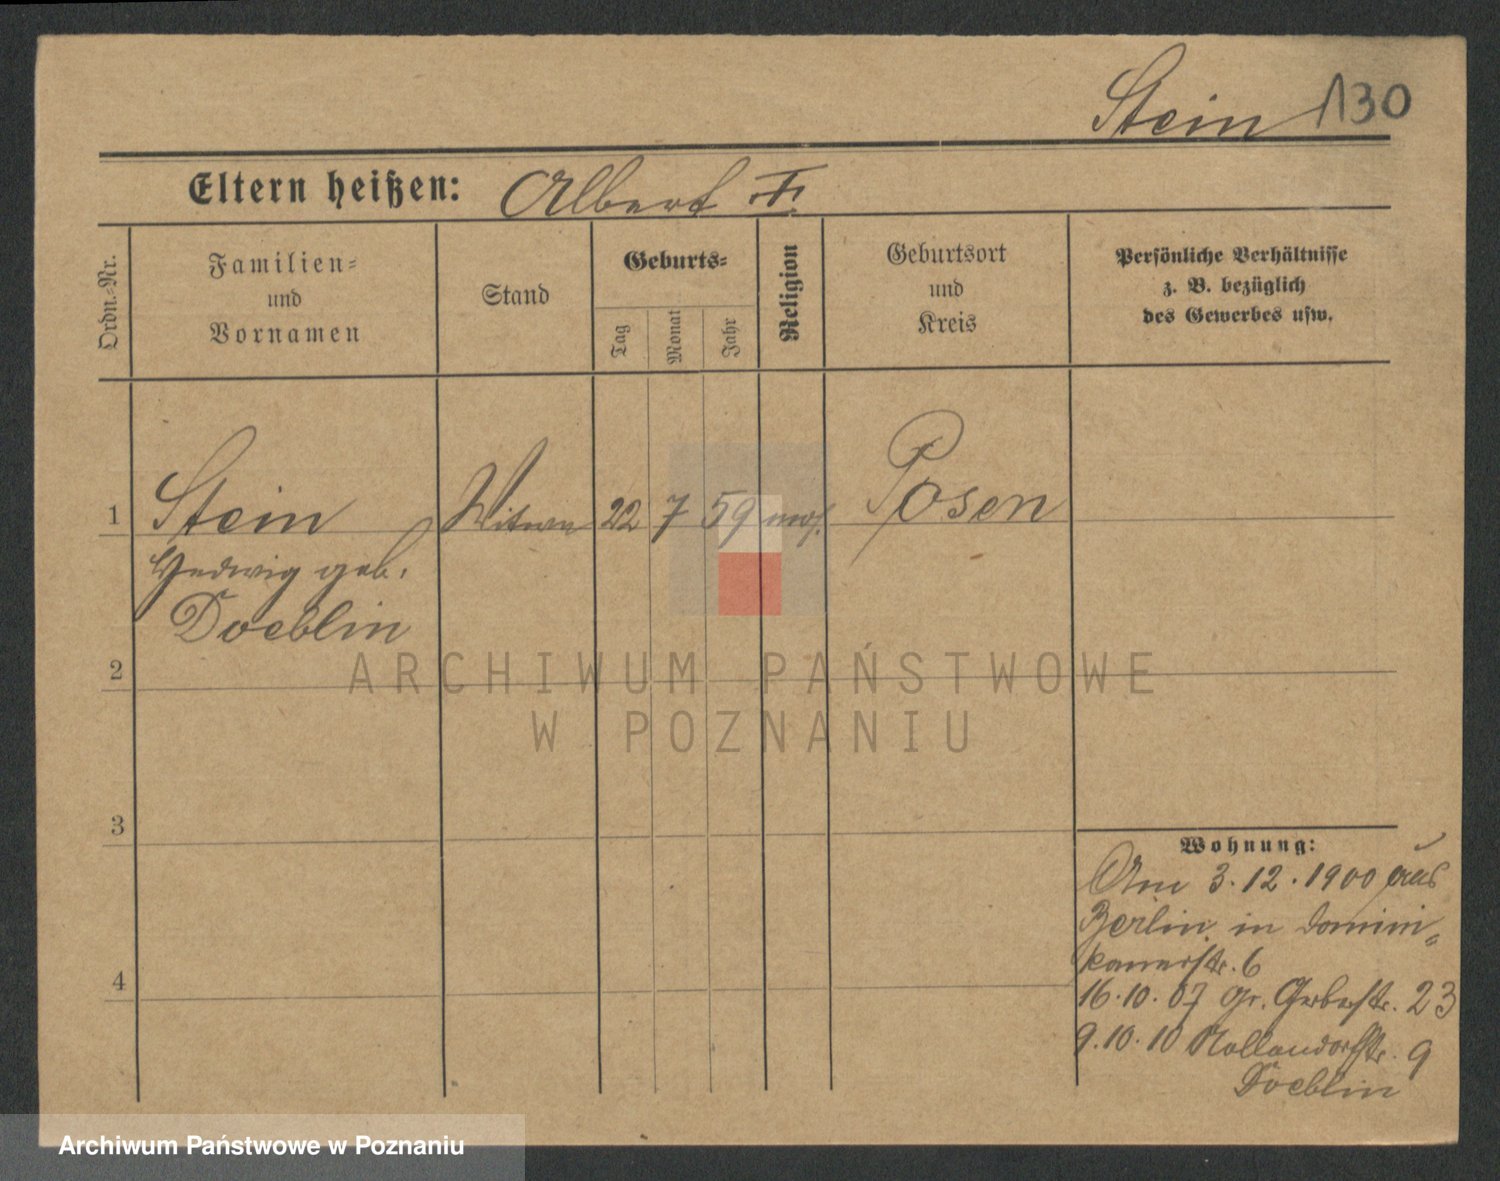 Stein 130
Eltern heißen: Albert I.
Ordn.-Nr.
Familien-
und
Vornamen
Stand
Geburts-
Tag
Monat
Jahr
Religion
Geburtsort
und
Kreis
Persönliche Verhältnisse
z. B. bezüglich
des Gewerbes usw.
1 Stein Witwe 22 7 59 mos. Posen
Hedwig geb.
Doeblin
2
3
4
Wohnung:
Am 3.12.1900 aus
Berlin in Domini-
kanerstr. 6
16.10.07 Gr. Gerberstr. 23
9.10.10 Nollendorfstr. 9
Doeblin
ARCHIWUM PAŃSTWOWE
W POZNANIU
Archiwum Państwowe w Poznaniu